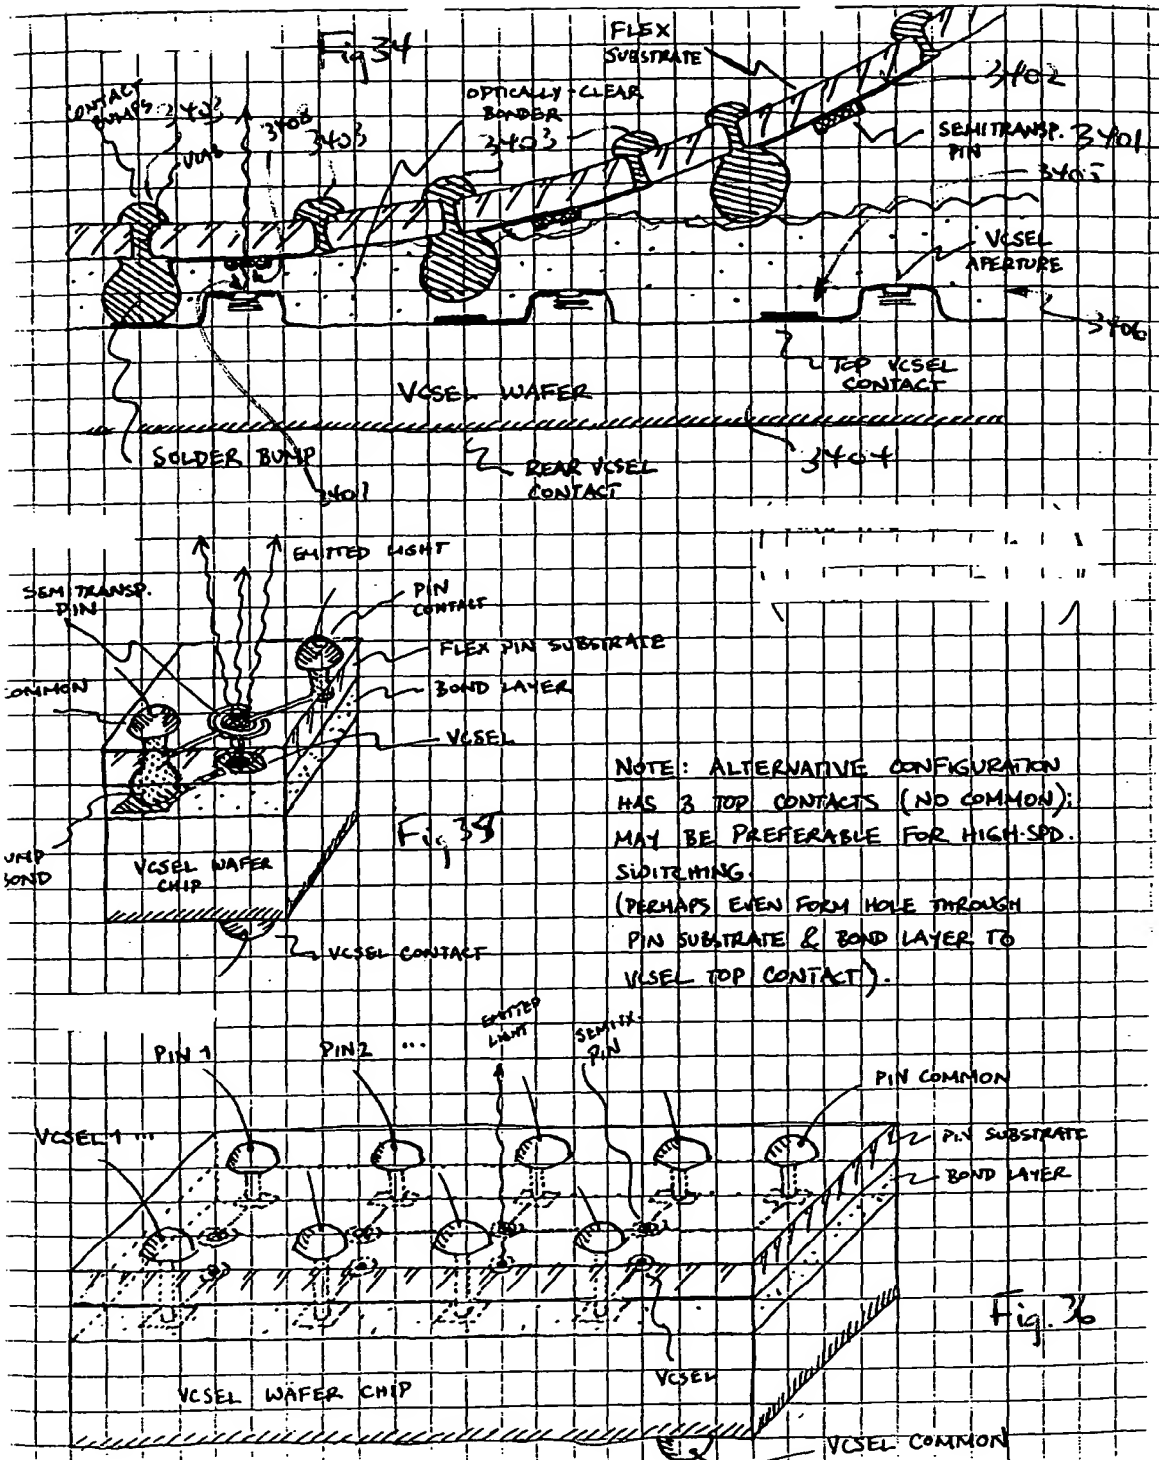 Fig 34
FLEX
SUBSTRATE
3402
CONTACT
BUMPS
3403
VIAS
3408
3403
OPTICALLY-CLEAR
BONDER
3403
SEMITRANSP.
PIN
3401
3405
VCSEL
APERTURE
3406
TOP VCSEL
CONTACT
VCSEL WAFER
SOLDER BUMP
REAR VCSEL
CONTACT
3404
EMITTED LIGHT
SEMITRANSP.
PIN
PIN
CONTACT
FLEX PIN SUBSTRATE
COMMON
BOND LAYER
VCSEL
UMP
BOND
VCSEL WAFER
CHIP
VCSEL CONTACT
NOTE: ALTERNATIVE CONFIGURATION
HAS 3 TOP CONTACTS (NO COMMON);
MAY BE PREFERABLE FOR HIGH-SPD.
SWITCHING.
(PERHAPS EVEN FORM HOLE THROUGH
PIN SUBSTRATE & BOND LAYER TO
VCSEL TOP CONTACT).
PIN 1
PIN 2 ...
EMITTED
LIGHT
SEMITX.
PIN
PIN COMMON
VCSEL 1 ...
PIN SUBSTRATE
BOND LAYER
Fig. 36
VCSEL WAFER CHIP
VCSEL
VCSEL COMMON